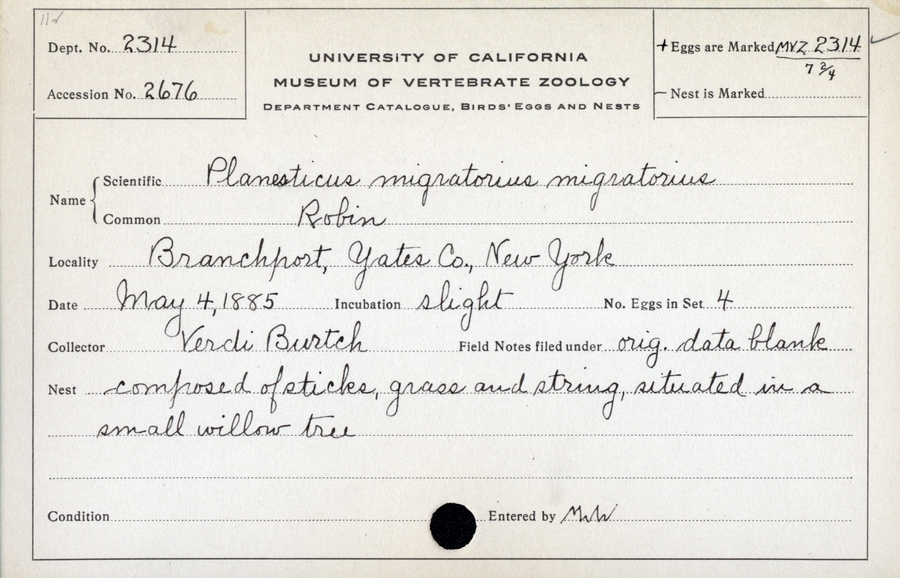 Dept. No. 2314
Accession No. 2676
UNIVERSITY OF CALIFORNIA
MUSEUM OF VERTEBRATE ZOOLOGY
DEPARTMENT CATALOGUE, BIRDS' EGGS AND NESTS
+ Eggs are Marked MVZ 2314
7 2/4
— Nest is Marked
Name { Scientific Planesticus migratorius migratorius
Common Robin
Locality Branchport, Yates Co., New York
Date May 4, 1885 Incubation slight No. Eggs in Set 4
Collector Verdi Burtch Field Notes filed under orig. data blank
Nest composed of sticks, grass and string, situated in a
small willow tree
Condition Entered by